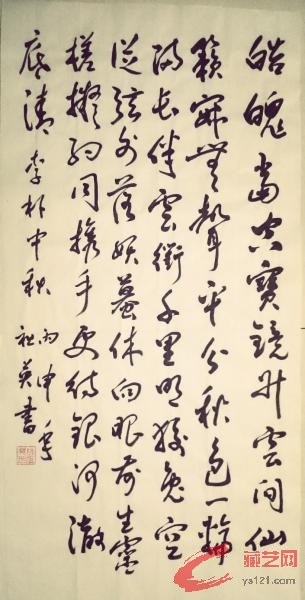 皓魄当空宝镜升云间仙
籁寂无声平分秋色一轮
满长伴云衢千里明狡兔空
从弦外落妖蟆休向眼前生灵
槎拟约同携手更待银河澈
底清 李朴中秋 丙申年
祉英书
藏艺网
ys121.com